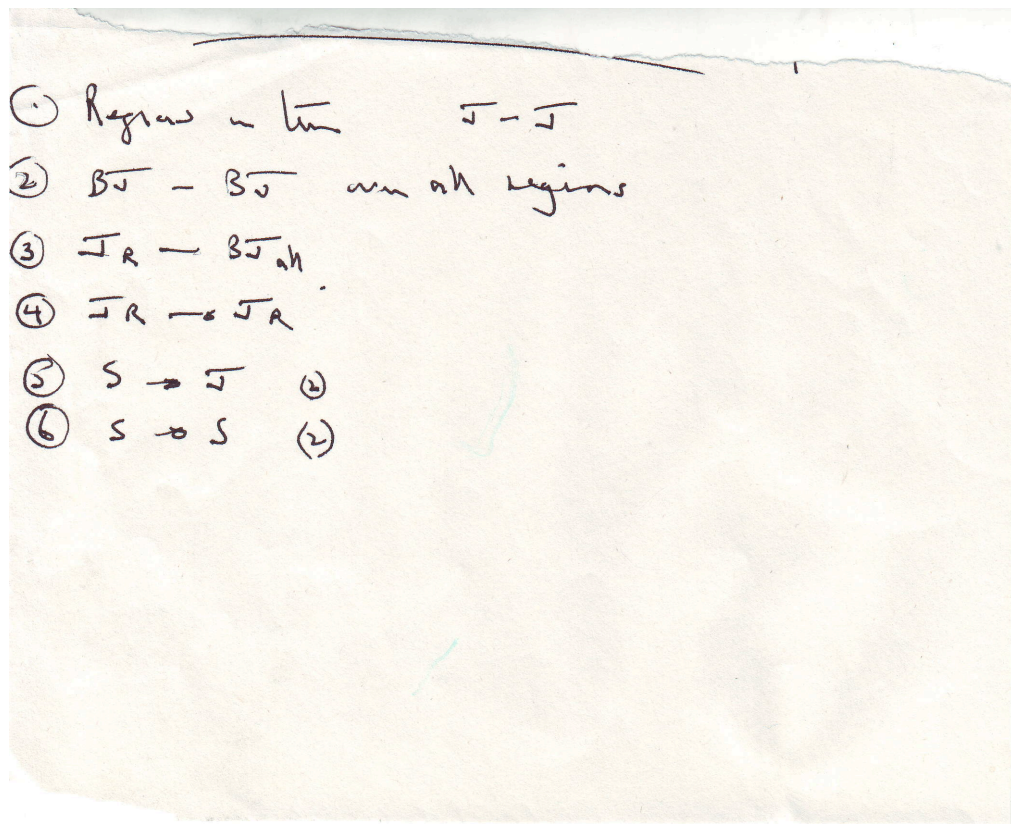 ① Regions in time J - J
② BJ - BJ over all regions
③ JR - BJ all
④ JR → JR
⑤ S → J (2)
⑥ S → S (2)